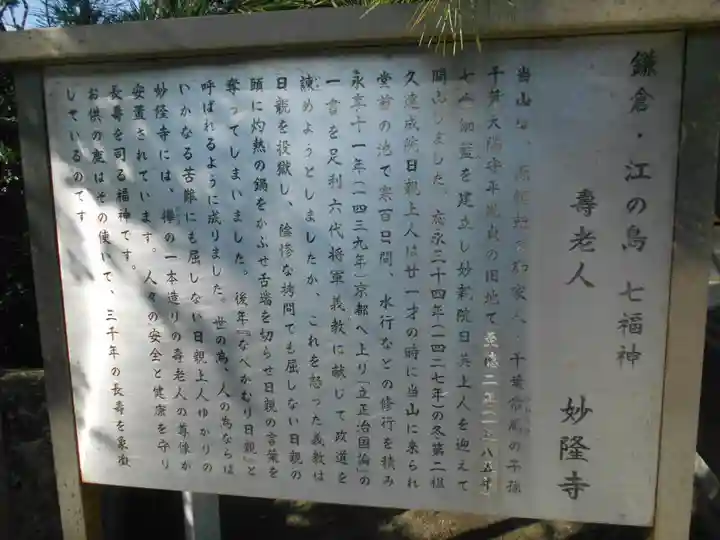 鎌倉・江の島 七福神
壽老人 妙隆寺
当山は、 千葉常胤の子孫
千葉大隅守平 の旧地で至徳二年(一三八五年)
七堂伽藍を建立し妙親院日英上人を迎えて
開山しました。応永三十四年(一四二七年)の冬第二祖
久遠成院日親上人は廿一才の時に当山に来られ
堂前の池で寒百日間、水行などの修行を積み
永享十一年(一四三九年)京都へ上り「立正治国論」の
一書を足利六代将軍義教に献じて政道を
諫めようとしましたが、これを怒った義教は
日親を投獄し、陰惨な拷問でも屈しない日親の
頭に灼熱の鍋をかぶせ舌端を切らせ日親の言葉を
奪ってしまいました。後年『なべかむり日親』と
呼ばれるように成りました。世の為、人の為ならば
いかなる苦難にも屈しない日親上人ゆかりの
妙隆寺には、欅の一本造りの壽老人の尊像が
安置されています。人々の安全と健康を守り
長壽を司る福神です。
お供の鹿はその使いで、三千年の長壽を象徴
しているのです。